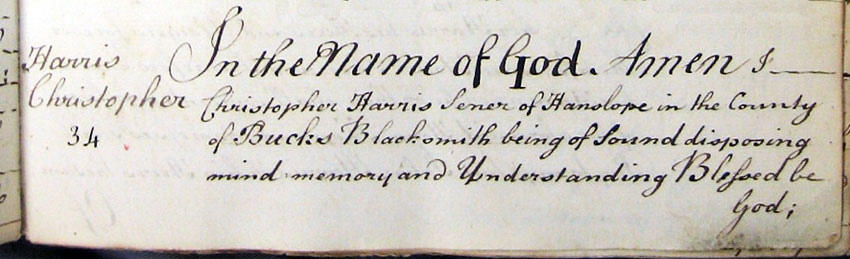 Harris
Christopher
34
In the Name of God. Amen I
Christopher Harris Sener of Hanslope in the County
of Bucks Blacksmith being of Sound disposing
mind memory and Understanding Blessed be
God;